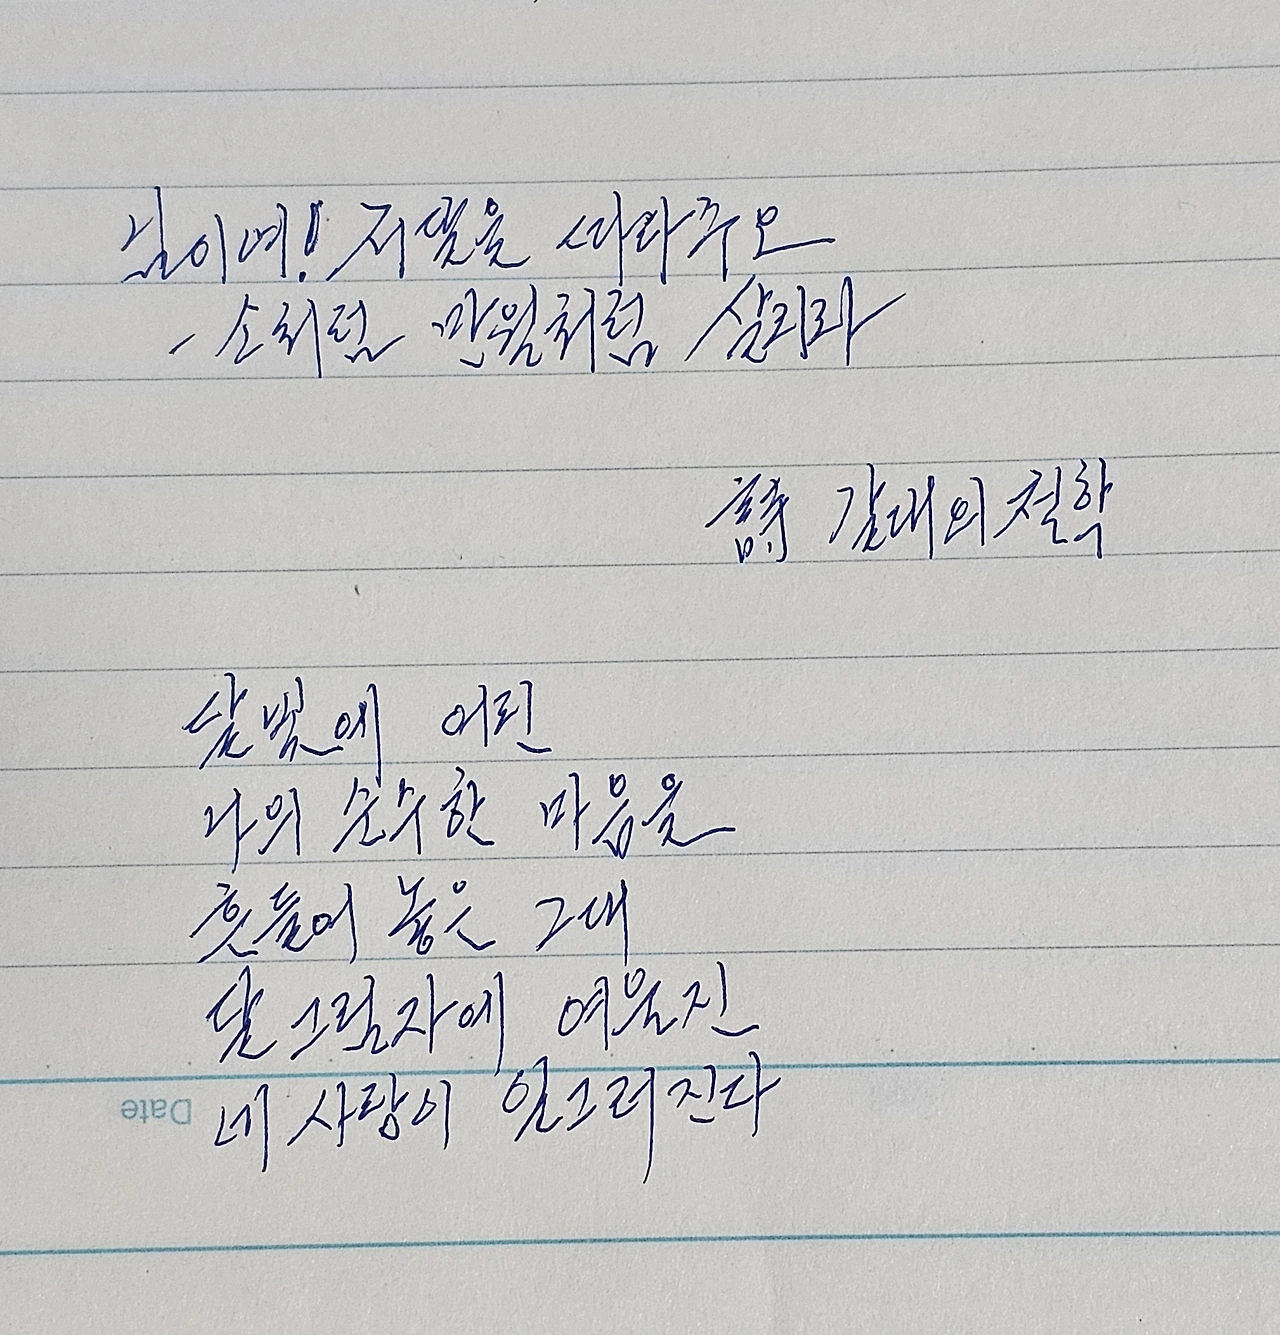 님이여! 저 달을 따다주오
- 소처럼 만월처럼 살리라
詩 갈대의 철학
달빛에 어린
나의 순수한 마음을
흔들어 놓은 그대
달 그림자에 여울진
네 사랑이 일그러진다
Date